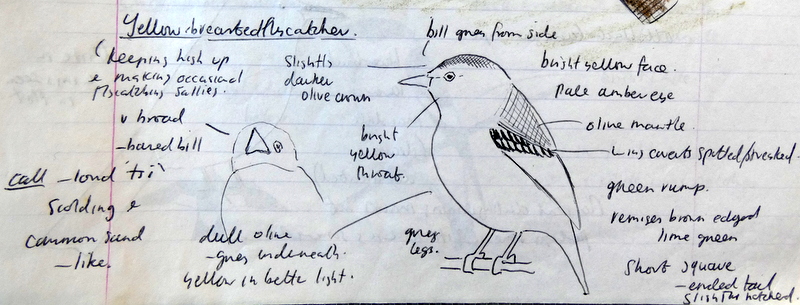 Yellow-breasted Flycatcher.
(Keeping high up
& making occasional
flycatching sallies.
v broad
-based bill
call - loud 'tsi'
scolding &
common sand
- like.
slightly
darker
olive crown
bright
yellow
throat
dull olive
- grey underneath.
yellow in better light.
grey
legs.
bill grey from side
bright yellow face.
Pale amber eye
olive mantle.
wing coverts spotted/streaked -
green rump.
remiges brown edged
lime green
short square
- ended tail
slightly notched.